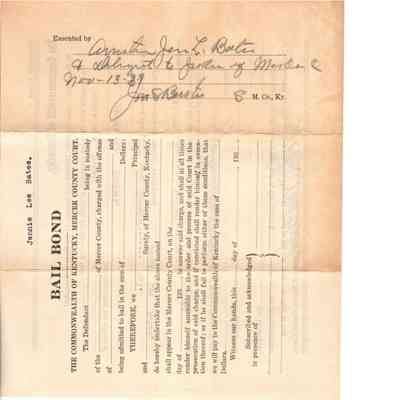 Executed by Jen L. Bates
& to Jailer of
Nov-13-39
S M. Co., Ky.
Jennie Lee Bates.
BAIL BOND
THE COMMONWEALTH OF KENTUCKY, MERCER COUNTY COURT.
The Defendant being in custody
of the of Mercer County, charged with the offense
of and
being admitted to bail in the sum of Dollars:
THEREFORE, we Principal
and Surety, of Mercer County, Kentucky,
do hereby undertake that the above named
shall appear in the Mercer County Court, on the
day of 193 , to answer said charge, and shall at all times
render himself amenable to the order and process of said Court in the
prosecution of said charge, and if convicted shall render himself in execu-
tion thereof; or if he shall fail to perform either of these conditions, that
we will pay to the Commonwealth of Kentucky the sum of
Dollars.
Witness our hands, this day of 193
Subscribed and acknowledged
in presence of